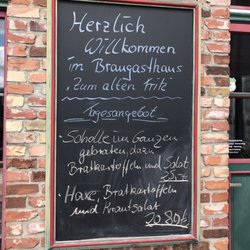 Herzlich
Willkommen
im Braugasthaus
"Zum alten Fritz"
Tagesangebot
· Scholle im Ganzen
gebraten, dazu
Bratkartoffeln und Salat
· Haxe, Bratkartoffeln
und Krautsalat